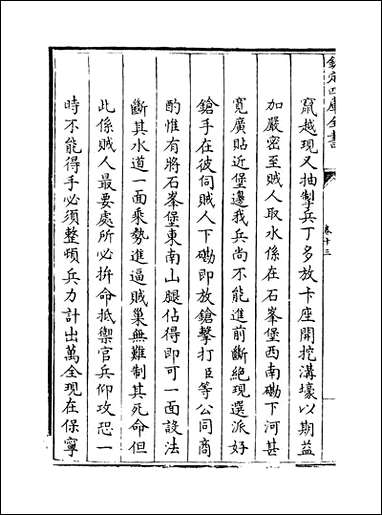 欽定四庫全書
卷十三
竄越現又抽掣兵丁多放卡座開挖溝壕以期益
加嚴密至賊人取水係在石峯堡西南磡下河甚
寛廣貼近堡邊我兵尚不能進前斷絶現選派好
鎗手在彼伺賊人下磡即放鎗擊打臣等公同商
酌惟有將石峯堡東南山腿佔得即可一面設法
斷其水道一面乘勢進逼賊巢無難制其死命但
此係賊人最要處所必拚命抵禦官兵仰攻恐一
時不能得手必須整頓兵力計出萬全現在保寧